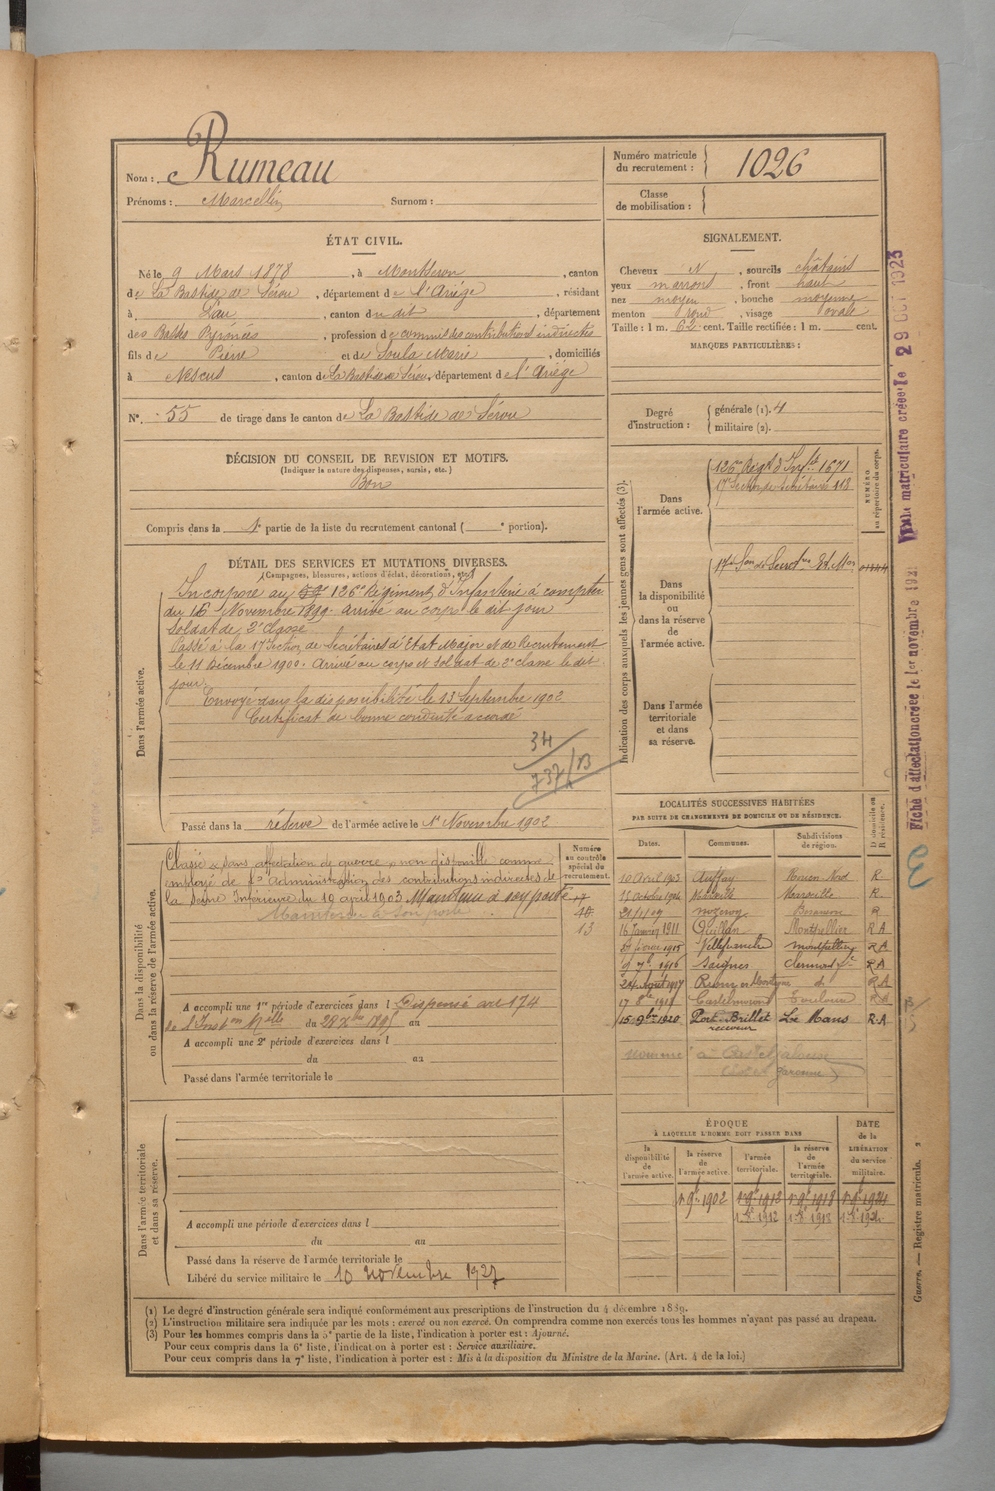 Nom : Rumeau
Prénoms : Marcellin Surnom :
Numéro matricule du recrutement : 1026
Classe de mobilisation :
ÉTAT CIVIL.
Né le 9 Mars 1878, à Montseron, canton
de La Bastide de Sérou, département de l'Ariège, résidant
à Pau, canton du dit, département
des Basses Pyrénées, profession de commis des contributions indirectes
fils de Pierre et de Soula Marie, domiciliés
à Nescus, canton de La Bastide de Sérou, département de l'Ariège
N° 55 de tirage dans le canton de La Bastide de Sérou
SIGNALEMENT.
Cheveux N, sourcils châtains
yeux marrons, front haut
nez moyen, bouche moyenne
menton rond, visage ovale
Taille : 1 m. 62 cent. Taille rectifiée : 1 m. cent.
MARQUES PARTICULIÈRES :
Degré d'instruction : générale (1). 4
militaire (2).
DÉCISION DU CONSEIL DE REVISION ET MOTIFS.
(Indiquer la nature des dispenses, sursis, etc.)
Bon
Compris dans la 1e partie de la liste du recrutement cantonal ( e portion).
DÉTAIL DES SERVICES ET MUTATIONS DIVERSES.
(Campagnes, blessures, actions d'éclat, décorations, etc.)
Dans l'armée active.
Incorporé au 126e Régiment d'Infanterie à compter
du 16 Novembre 1899. Arrivé au corps le dit jour
Soldat de 2e Classe
Passé à la 17e Section de Secrétaires d'Etat Major et de Recrutement
le 11 Décembre 1900. Arrivé au corps et soldat de 2e classe le dit
jour.
Envoyé dans la disponibilité le 13 Septembre 1902
Certificat de bonne conduite accordé
34
737/B
Passé dans la réserve de l'armée active le 1er Novembre 1902
Indication des corps auxquels les jeunes gens sont affectés (3).
NUMÉRO au répertoire du corps.
Dans l'armée active.
126e Régt d'Infie 1671
17e Section de Secrétaires 118
Dans la disponibilité ou dans la réserve de l'armée active.
17e Son de Secrétres Et. Mor
Dans l'armée territoriale et dans sa réserve.
Dans la disponibilité ou dans la réserve de l'armée active.
Numéro au contrôle spécial du recrutement.
Classé "sans affectation de guerre", non disponible comme
employé de l'administration des contributions indirectes de
la Seine Inférieure du 19 avril 1903 Maintenu à son poste
Maintenu à son poste
13
A accompli une 1re période d'exercices dans l Dispensé art 174
de l'Inston Mlle du
A accompli une 2e période d'exercices dans l
du au
Passé dans l'armée territoriale le
LOCALITÉS SUCCESSIVES HABITÉES
PAR SUITE DE CHANGEMENTS DE DOMICILE OU DE RÉSIDENCE.
Dates. Communes. Subdivisions de région. Domicile ou Résidence.
10 Avril 1903 Auffay Rouen-Nord R
15 octobre 1904 Marseille R
21/1/09 nozeroy Besançon R
16 Janvier 1911 Quillan Montpellier R A
février 1915 Villefranche montpellier R A
1916 Saignes R A
24 Août 1917 R A
17 8bre 1918 Toulouse R A
15 9bre 1920 Port-Brillet Le Mans R A
receveur
nommé à Casteljaloux
Garonne)
Dans l'armée territoriale et dans sa réserve.
A accompli une période d'exercices dans l
du au
Passé dans la réserve de l'armée territoriale le
Libéré du service militaire le 10 novembre 1927
ÉPOQUE
À LAQUELLE L'HOMME DOIT PASSER DANS
DATE de la LIBÉRATION du service militaire.
la disponibilité de l'armée active. la réserve de l'armée active. l'armée territoriale. la réserve de l'armée territoriale.
1er 9bre 1902 1er 9bre 1912 1er 9bre 1918 1er 9bre 1924
(1) Le degré d'instruction générale sera indiqué conformément aux prescriptions de l'instruction du 4 décembre 1889.
(2) L'instruction militaire sera indiquée par les mots : exercé ou non exercé. On comprendra comme non exercés tous les hommes n'ayant pas passé au drapeau.
(3) Pour les hommes compris dans la 5e partie de la liste, l'indication à porter est : Ajourné.
Pour ceux compris dans la 6e liste, l'indication à porter est : Service auxiliaire.
Pour ceux compris dans la 7e liste, l'indication à porter est : Mis à la disposition du Ministre de la Marine. (Art. 4 de la loi.)
Fiche d'affectation créée le 1er novembre 1921
matriculaire créée le 29 OCT 1923
Guerre. — Registre matricule.